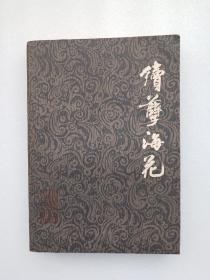 續孽海花